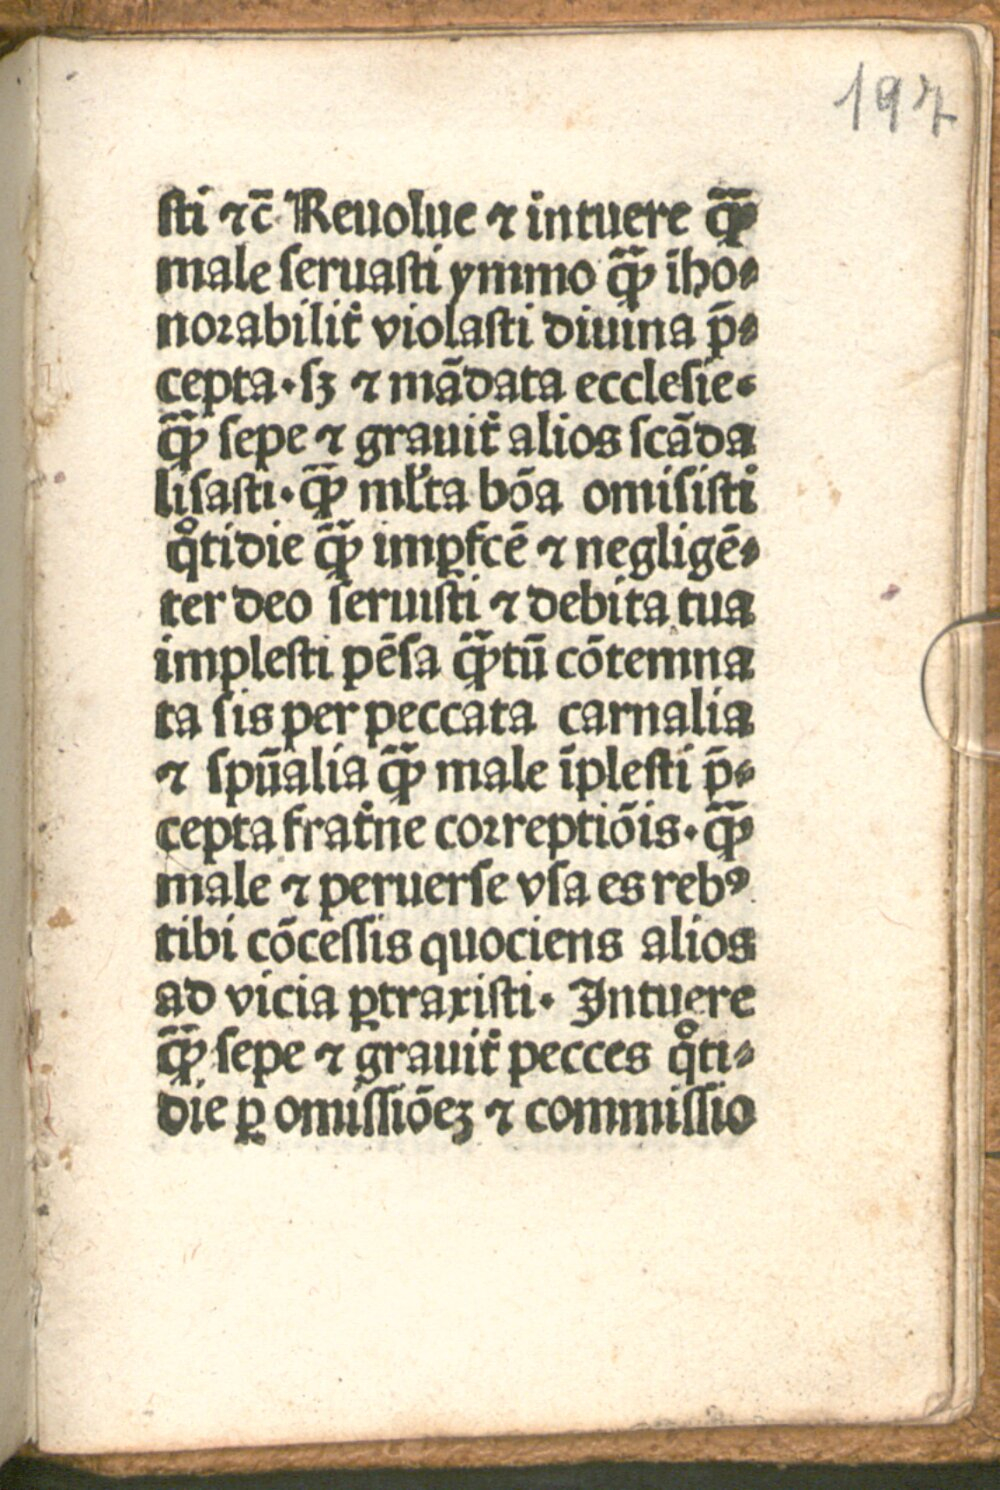 197
ſti ⁊c̄ Reuolue ⁊ intuere ꝙ̄
male ſeruaſti ymmo ꝙ̄ īho⸗
noꝛabilit̉ violaſti diuina p̄⸗
cepta·ſꝫ ⁊ mādata eccleſie·
ꝙ̄ ſepe ⁊ grauit̉ alios ſcāda
liſaſti·ꝙ̄ mľta bōa omiſiſti
qͦtidie ꝙ̄ imꝑfcē ⁊ negligē⸗
ter deo ſeruiſti ⁊ debita tua
impleſti pēſa ꝙ̄tū cōtemna
ta ſis per peccata carnalia
⁊ ſpūalia ꝙ̄ male īpleſti p̄⸗
cepta frat̉ne coꝛreptiōis·ꝙ̄
male ⁊ peruerſe vſa es rebꝰ
tibi cōceſſis quociens alios
ad vicia ꝑtraxiſti· Intuere
ꝙ̄ ſepe ⁊ grauit̉ pecces qͦti⸗
die ꝑ omiſſiōeꝫ ⁊ commiſſio